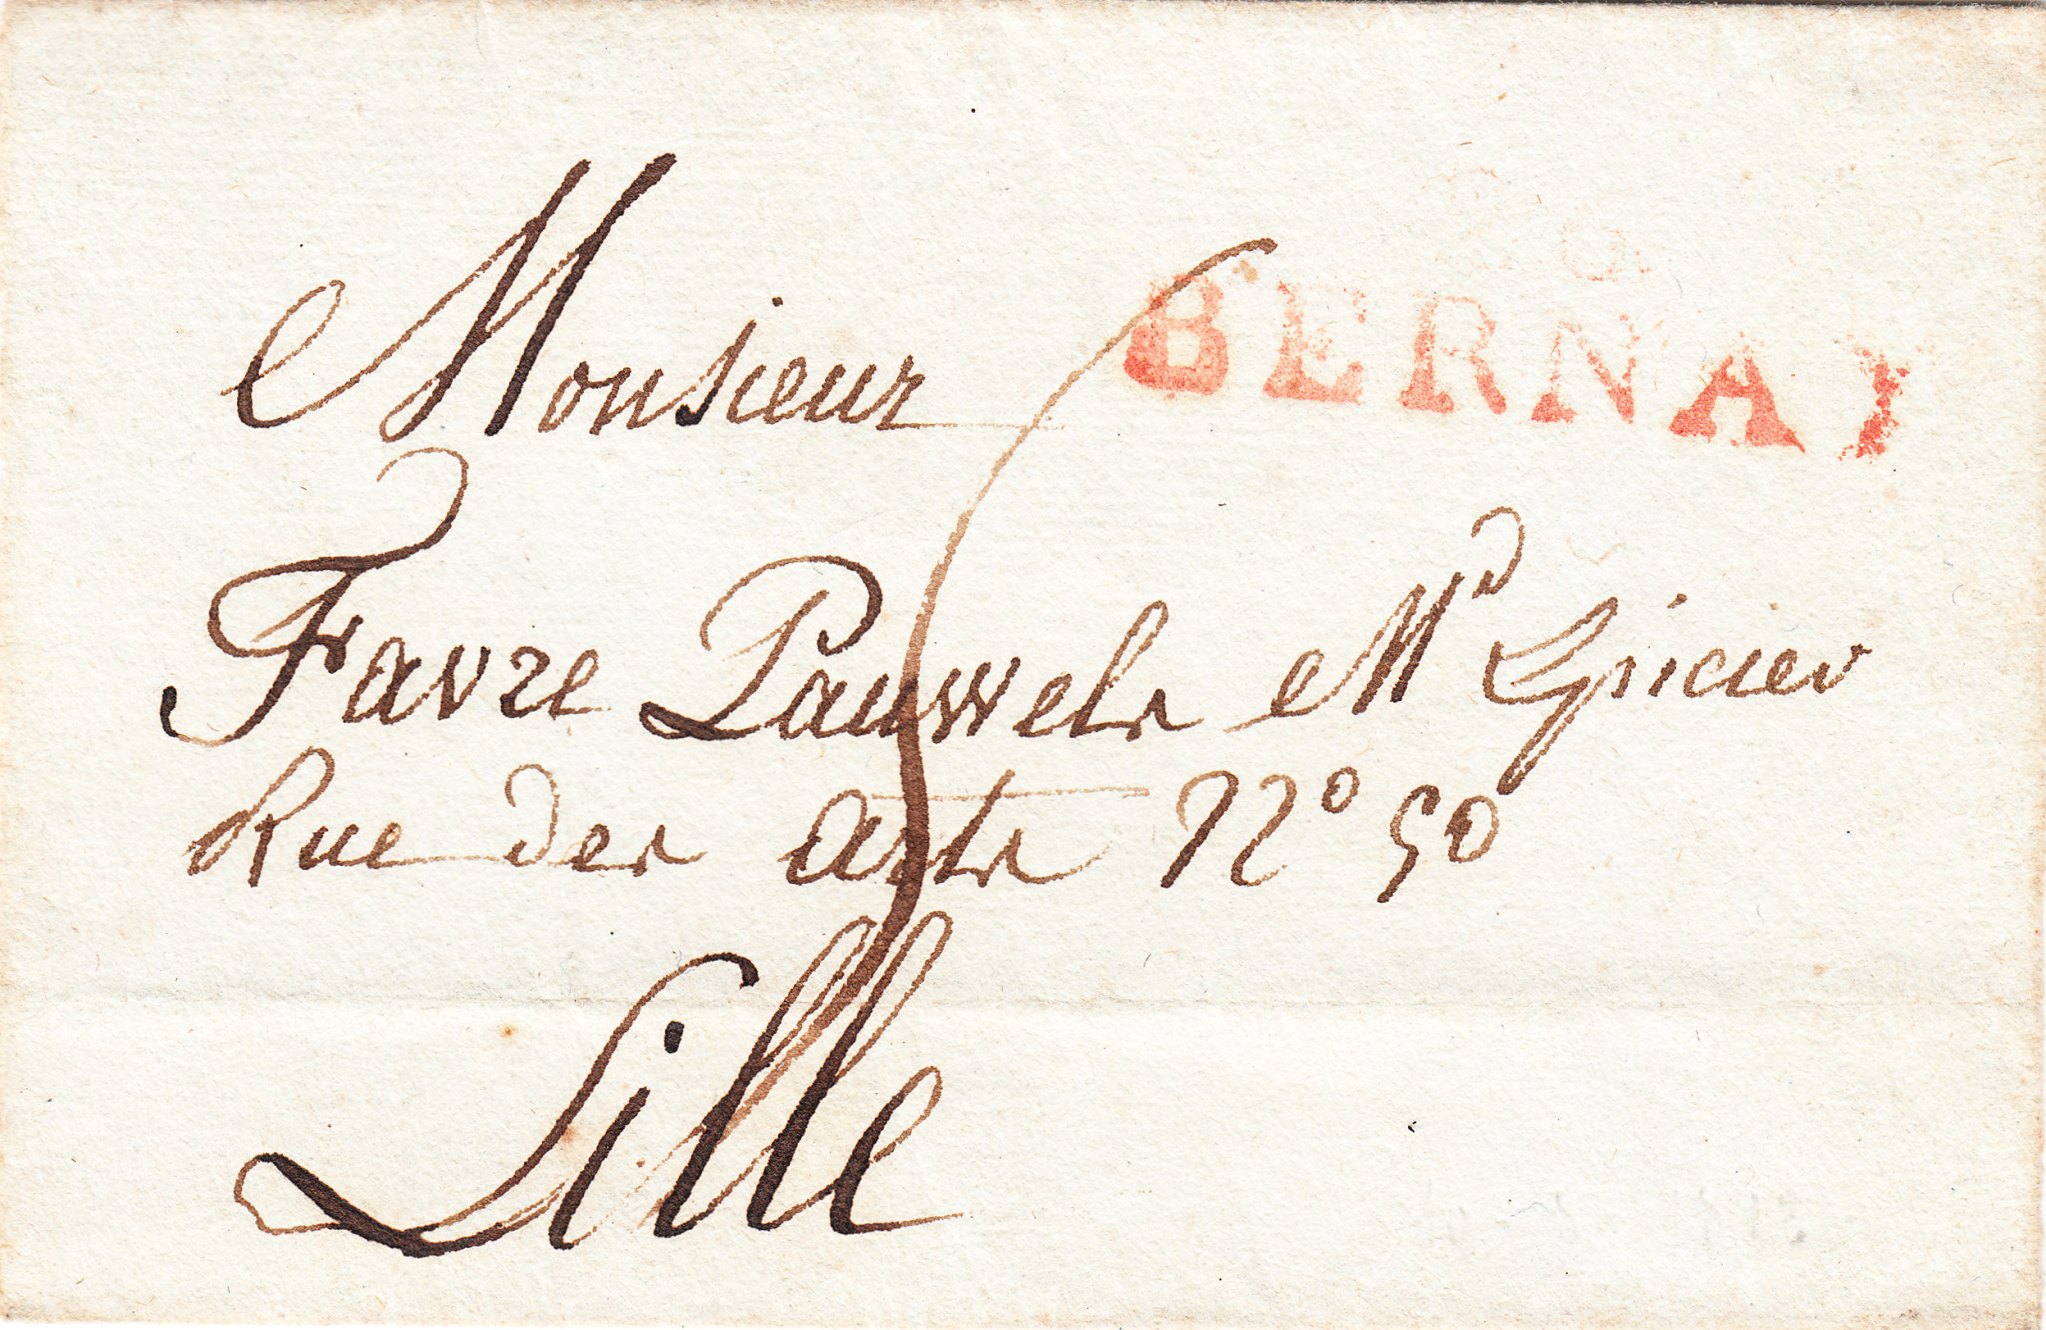 BERNAY
Monsieur
Favre Pauwels Md Epicier
Rue des arts No 50
Lille